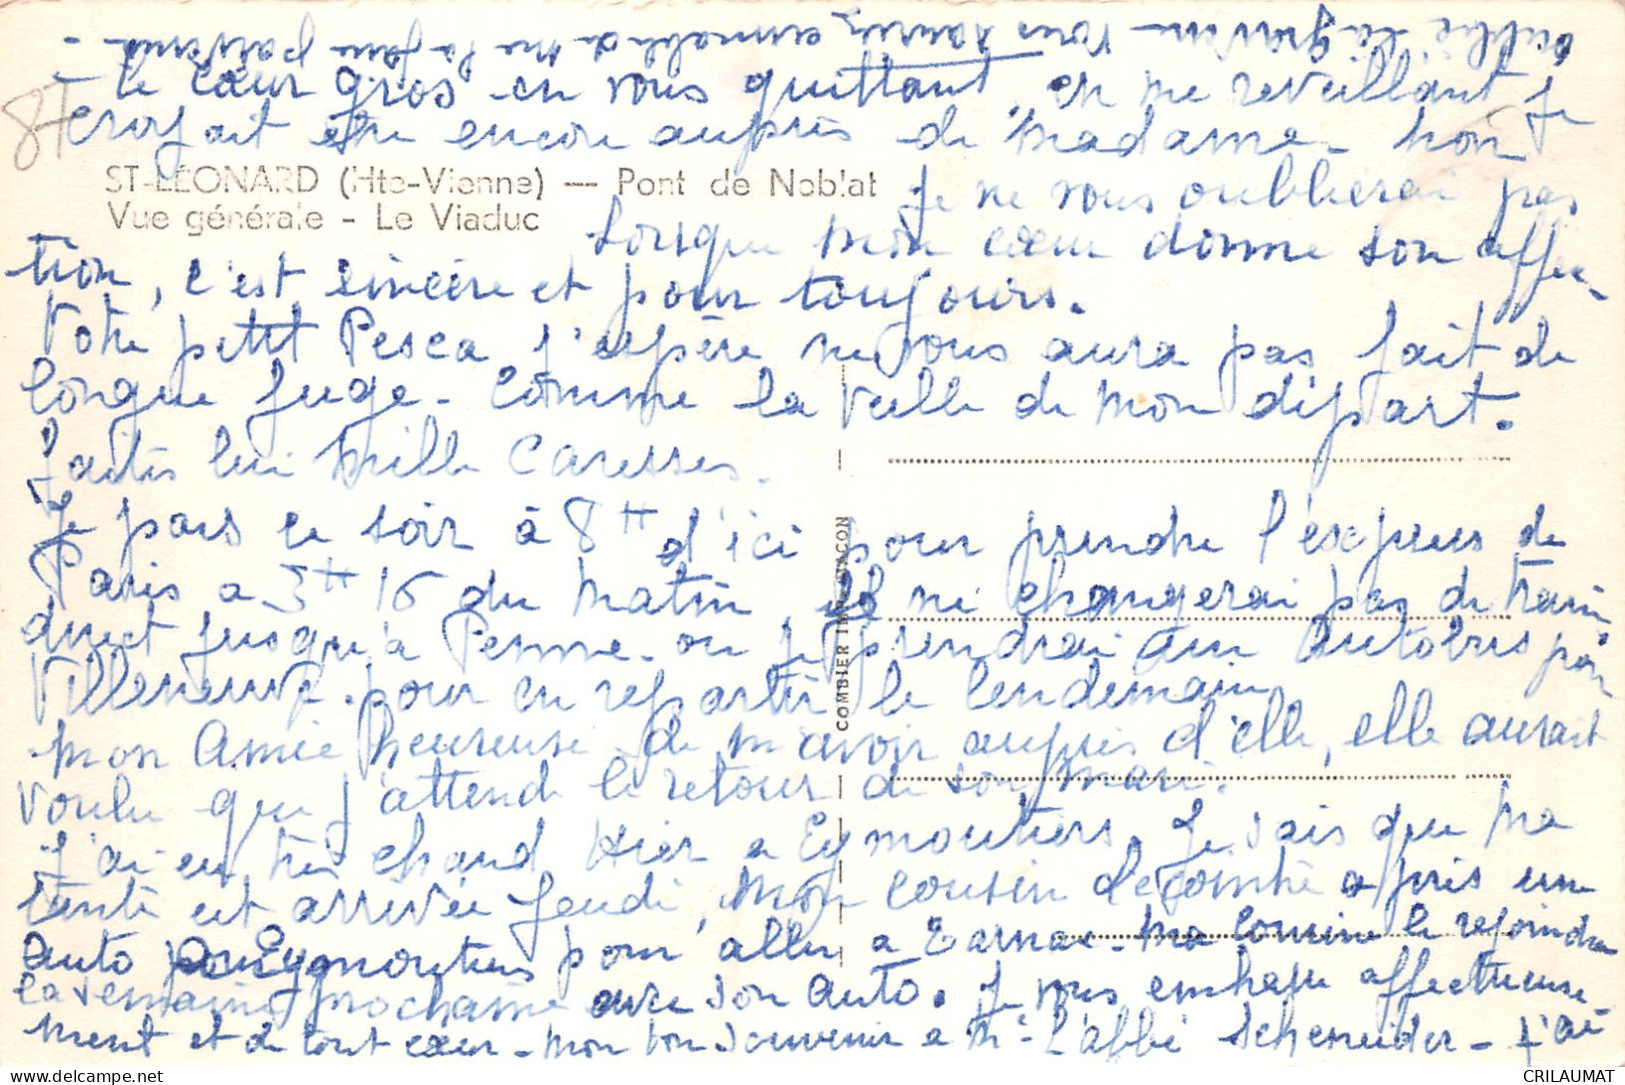 le cœur gros en vous quittant, en me reveillant je
croyait être encore auprès de Madame. Non
ST-LÉONARD (Hte-Vienne) — Pont de Noblat
Vue générale - Le Viaduc
je ne vous oublierai pas
Lorsque mon cœur donne son affec-
tion, c'est sincère et pour toujours.
Votre petit Pesca j'espère ne vous aura pas fait de
longue fuge - Comme la veille de mon départ.
faites lui mille Caresses.
Je pars ce soir à 8H d'ici pour prendre l'express de
Paris a 3H 16 du matin, ne changerai pas de train
direct jusqu'à Penne. ou je prendrai un autobus pour
Villeneuve. pour en repartir le lendemain
mon Amie heureuse de m'avoir auprès d'elle, elle aurait
voulu que j'attende le retour de son mari.
J'ai eu très chaud Hier a Eymoutiers. Je sais que ma
tante est arrivée Jeudi, mon cousin a pris un
auto Eymoutiers pour aller a ma le rejoindre
la semaine prochaine avec son auto. Je vous embrasse affectueuse-
ment et de tout cœur - mon bon Souvenir a Mr L'abbé Scheneider - J'ai
oublié vous la
ST
COMBIER IMP. MACON
CRILAUMAT